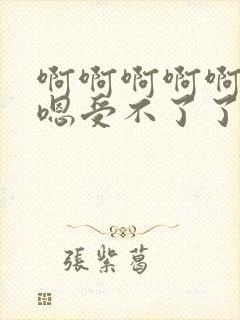 啊啊啊啊啊
嗯受不了了
張紫葛